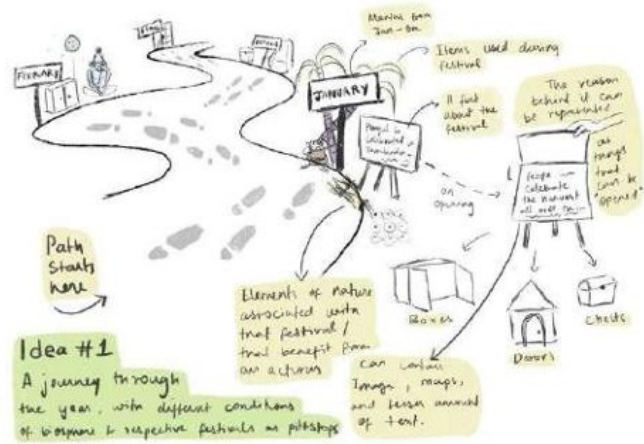 FEBRUARY
JANUARY
Items used during
festival
A fact
about the
festival
The reason
behind it can
be represented
as
things
that
can be
"opened"
on
opening
People
celebrate
the harvest
all over
Path
starts
here
Elements of nature
associated with
that festival /
that benefit from
our actions
Boxes
Doors
Chests
Can contain
Images, maps,
and lesser amount
of text.
Idea #1
A journey through
the year, with different conditions
of biosphere & respective festivals as pitstops